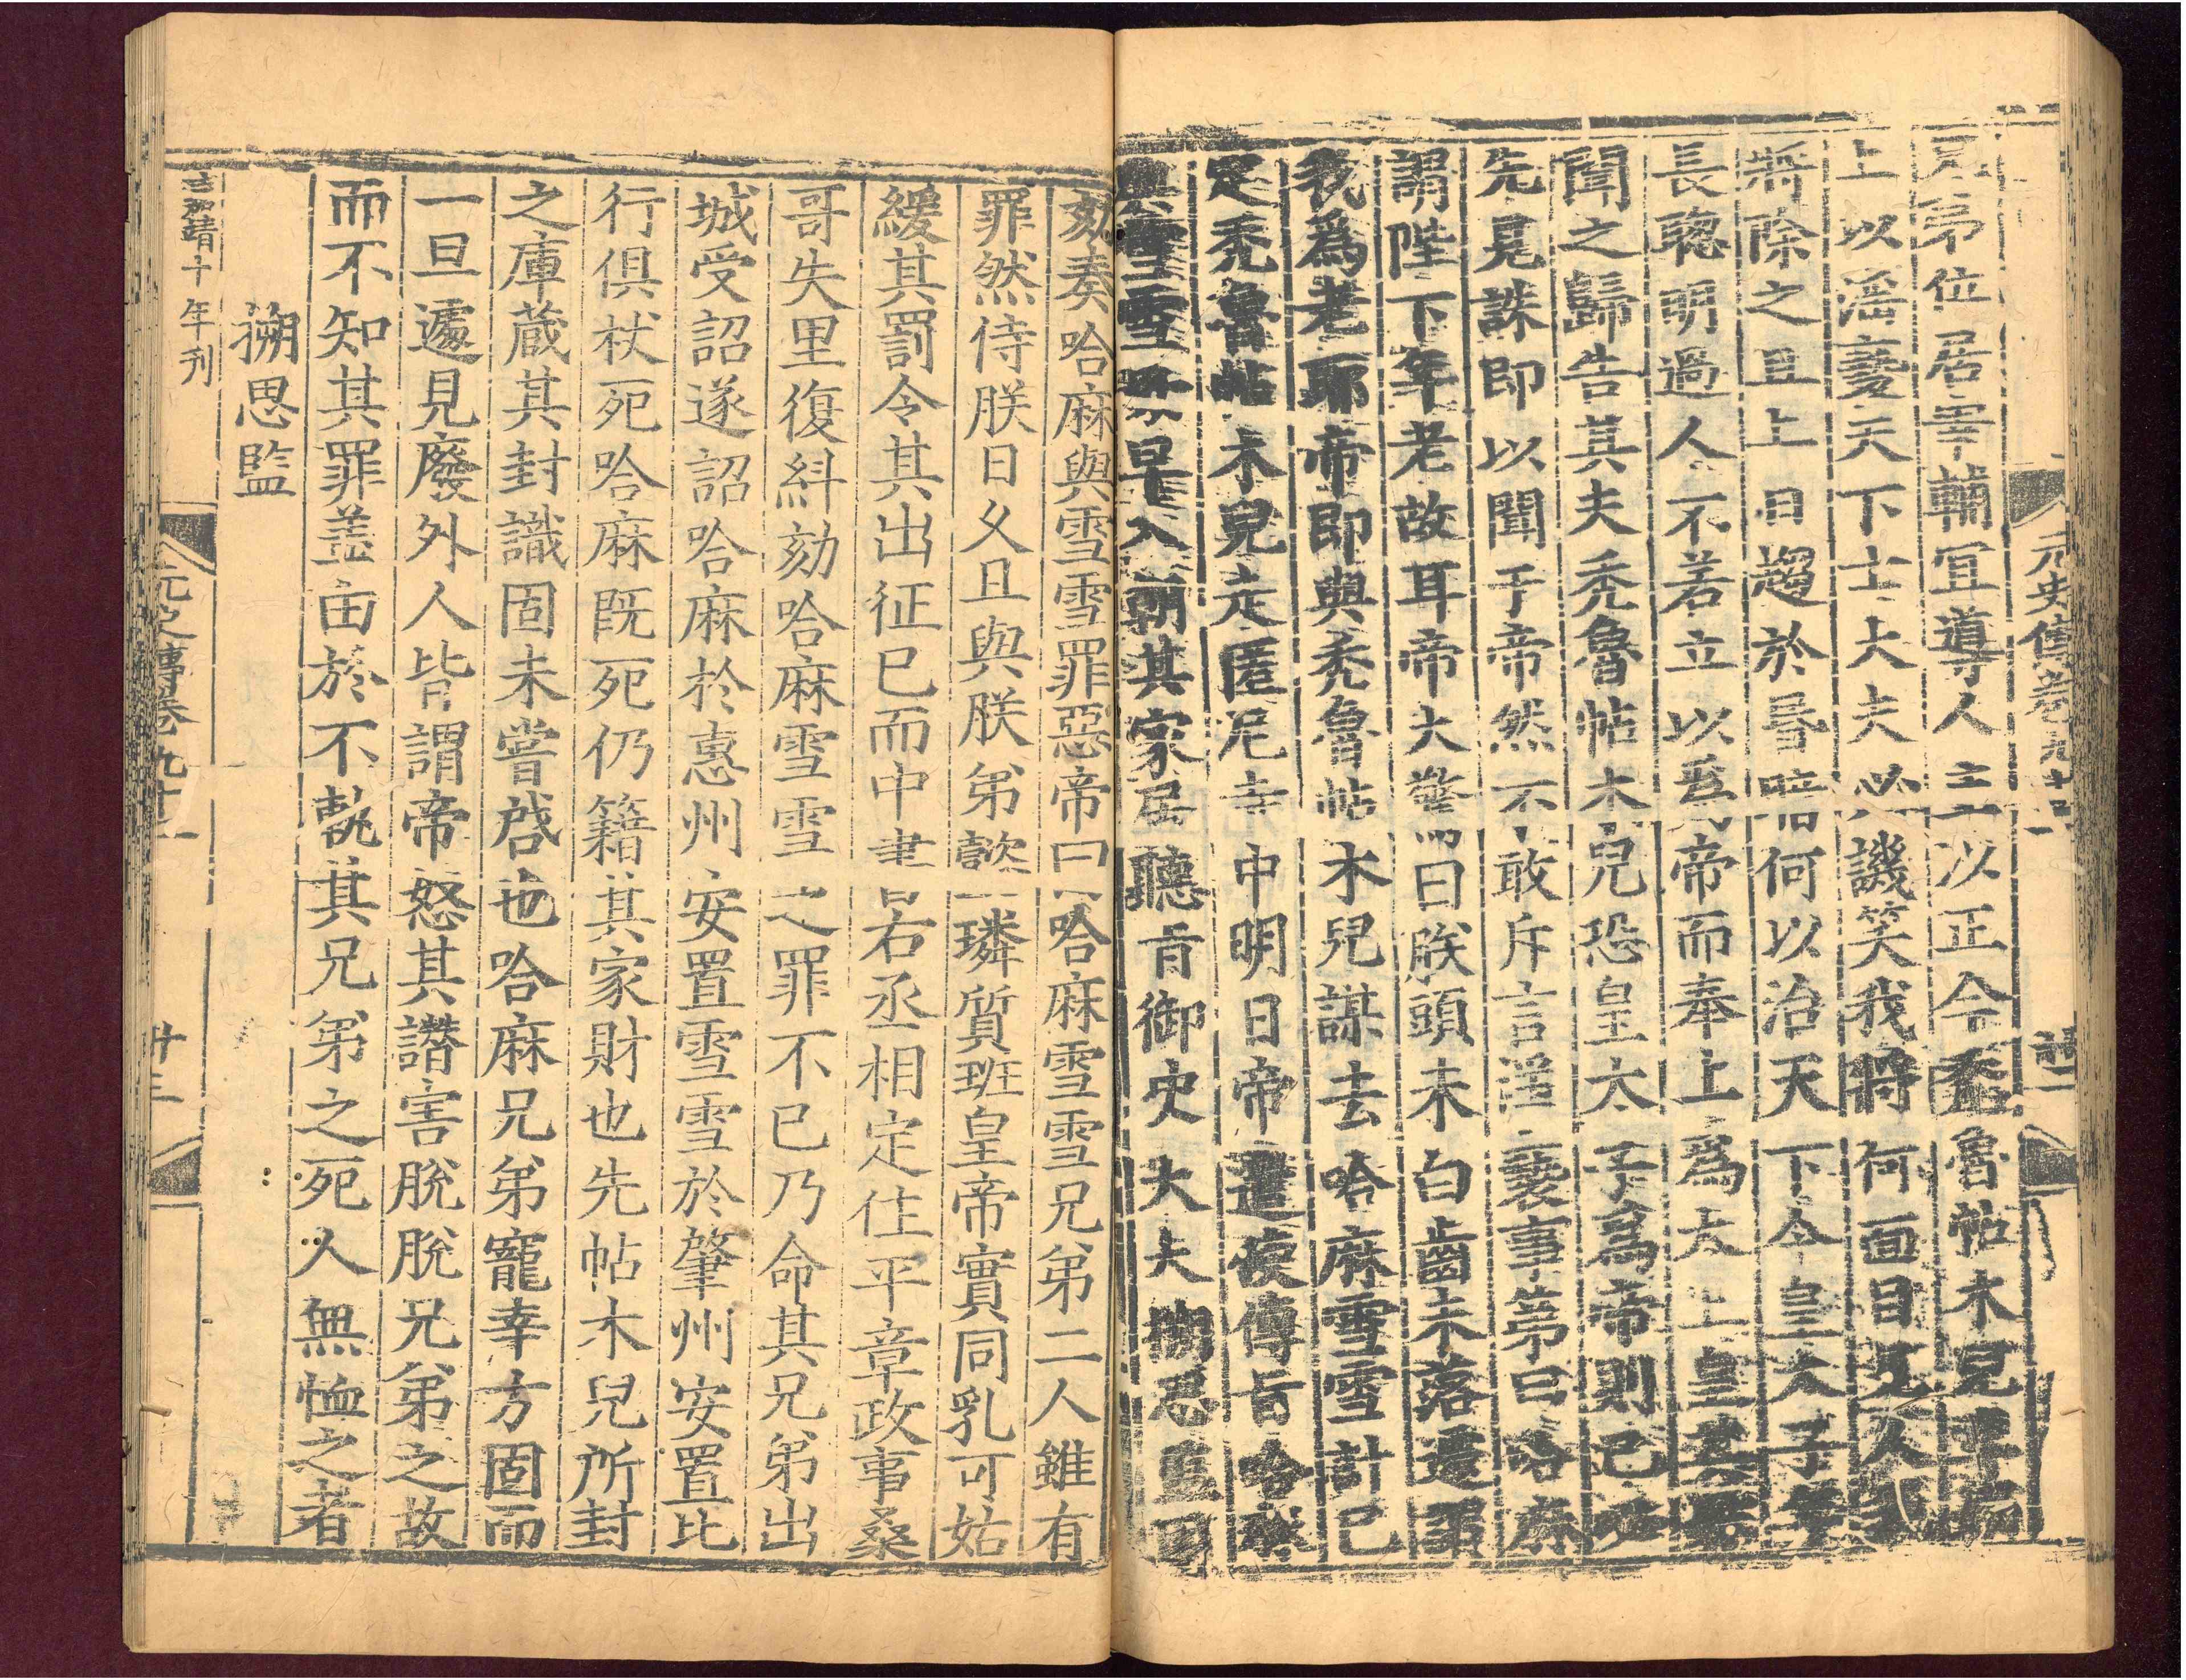 兄弟位居宰輔宜導人主以正今秃魯帖木兒專媚
上以滛䙝天下士大夫必譏笑我將何面目見人我
將除之且上日趨於昏暗何以治天下今皇太子年
長聰明過人不若立以爲帝而奉上爲太上皇其妹
聞之歸告其夫秃魯帖木兒恐皇太子爲帝則己必
先見誅即以聞于帝然不敢斥言滛䙝事第曰哈麻
謂陛下年老故耳帝大驚曰朕頭未白齒未落遽謂
我爲老耶帝即與秃魯帖木兒謀去哈麻雪雪計已
定秃魯帖木兒走匿尼寺中明日帝遣使傳旨哈麻
與雪雪毋早入朝其家居聽旨御史大夫搠思監因
劾奏哈麻與雪雪罪惡帝曰哈麻雪雪兄弟二人雖有
罪然侍朕日久且與朕弟懿璘質班皇帝實同乳可姑
緩其罰令其出征已而中書右丞相定住平章政事桑
哥失里復糾劾哈麻雪雪之罪不已乃命其兄弟出
城受詔遂詔哈麻於惠州安置雪雪於肇州安置比
行俱杖死哈麻既死仍籍其家財也先帖木兒所封
之庫蔵其封識固未嘗啓也哈麻兄弟寵幸方固而
一旦遽見廢外人皆謂帝怒其譖害脫脫兄弟之故
而不知其罪盖由於不軌其兄弟之死人無恤之者
搠思監
元史傳卷九十二
嘉靖十年刊
元史傳卷九十二
廿三